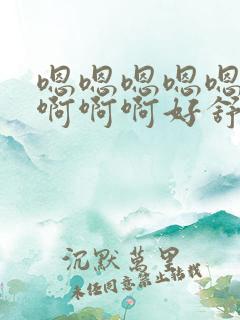 嗯嗯嗯嗯嗯
啊啊啊好舒
沉默萬里
未经同意禁止转载